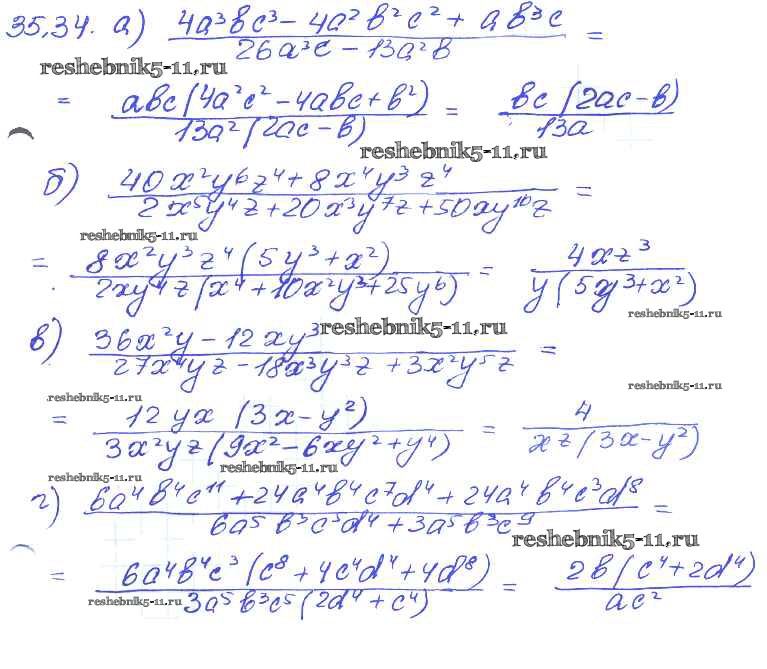 35.34. а) (4a³bc³ − 4a²b²c² + ab³c) / (26a³c − 13a²b) =
reshebnik5-11.ru
= abc(4a²c² − 4abc + b²) / 13a²(2ac − b) = bc(2ac − b) / 13a
reshebnik5-11.ru
б) (40x²y⁶z⁴ + 8x⁴y³z⁴) / (2x⁵y⁴z + 20x³y⁷z + 50xy¹⁰z) =
reshebnik5-11.ru
= 8x²y³z⁴(5y³ + x²) / 2xy⁴z(x⁴ + 10x²y³ + 25y⁶) = 4xz³ / y(5y³ + x²)
reshebnik5-11.ru
в) (36x²y − 12xy³) / (27x⁴yz − 18x³y³z + 3x²y⁵z) =
reshebnik5-11.ru
reshebnik5-11.ru
reshebnik5-11.ru
= 12yx(3x − y²) / 3x²yz(9x² − 6xy² + y⁴) = 4 / xz(3x − y²)
reshebnik5-11.ru
reshebnik5-11.ru
г) (6a⁴b⁴c¹¹ + 24a⁴b⁴c⁷d⁴ + 24a⁴b⁴c³d⁸) / (6a⁵b³c⁵d⁴ + 3a⁵b³c⁹) =
reshebnik5-11.ru
= 6a⁴b⁴c³(c⁸ + 4c⁴d⁴ + 4d⁸) / 3a⁵b³c⁵(2d⁴ + c⁴) = 2b(c⁴ + 2d⁴) / ac²
reshebnik5-11.ru